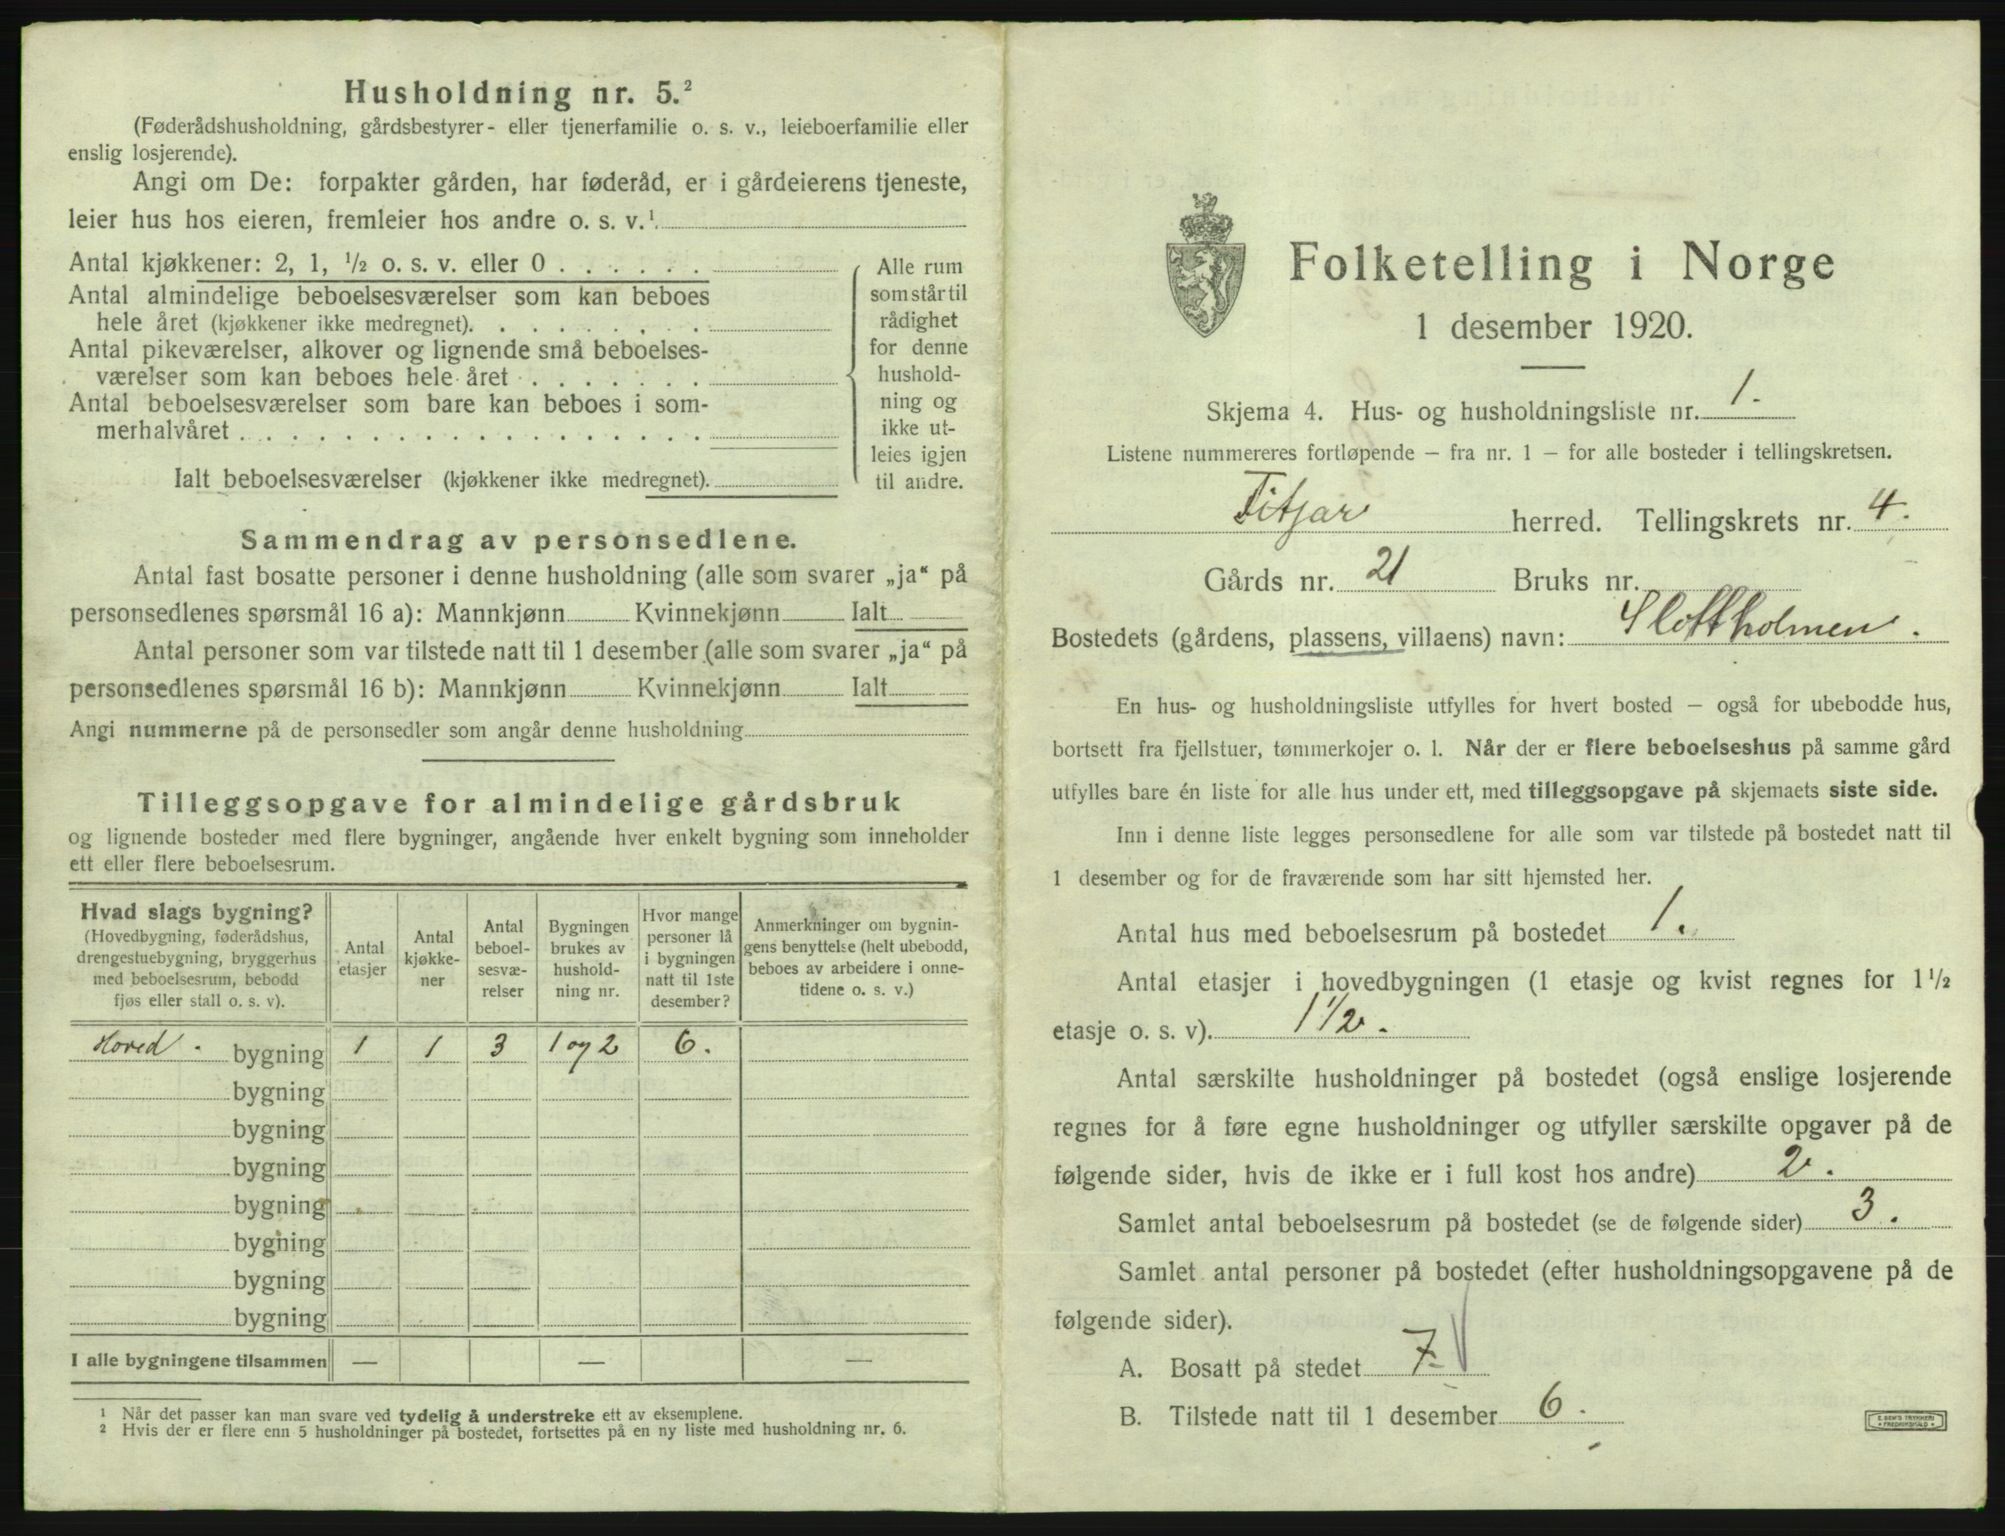 Husholdning nr. 5.²
(Føderådshusholdning, gårdsbestyrer- eller tjenerfamilie o. s. v., leieboerfamilie eller
enslig losjerende).
Angi om De: forpakter gården, har føderåd, er i gårdeierens tjeneste,
leier hus hos eieren, fremleier hos andre o. s. v.¹
Antal kjøkkener: 2, 1, ½ o. s. v. eller 0 . . . . . .
Antal almindelige beboelsesværelser som kan beboes
hele året (kjøkkener ikke medregnet). . . . . . . . .
Antal pikeværelser, alkover og lignende små beboelses-
værelser som kan beboes hele året . . . . . . .
Antal beboelsesværelser som bare kan beboes i som-
merhalvåret . . . . . . . . . . . . . . . . . .
Ialt beboelsesværelser (kjøkkener ikke medregnet).
Alle rum
som står til
rådighet
for denne
hushold-
ning og
ikke ut-
leies igjen
til andre.
Sammendrag av personsedlene.
Antal fast bosatte personer i denne husholdning (alle som svarer „ja“ på
personsedlenes spørsmål 16 a): Mannkjønn Kvinnekjønn Ialt
Antal personer som var tilstede natt til 1 desember (alle som svarer „ja“ på
personsedlenes spørsmål 16 b): Mannkjønn Kvinnekjønn Ialt
Angi nummerne på de personsedler som angår denne husholdning
Tilleggsopgave for almindelige gårdsbruk
og lignende bosteder med flere bygninger, angående hver enkelt bygning som inneholder
ett eller flere beboelsesrum.
Hvad slags bygning?
(Hovedbygning, føderådshus,
drengestuebygning, bryggerhus
med beboelsesrum, bebodd
fjøs eller stall o. s. v).
Antal
etasjer
Antal
kjøkke-
ner
Antal
beboel-
sesvæ-
relser
Bygningen
brukes av
hushold-
ning nr.
Hvor mange
personer lå
i bygningen
natt til 1ste
desember?
Anmerkninger om bygnin-
gens benyttelse (helt ubebodd,
beboes av arbeidere i onne-
tidene o. s. v.)
Hoved. bygning 1 1 3 1 og 2 6.
bygning
bygning
bygning
bygning
bygning
bygning
bygning
I alle bygningene tilsammen — — —
¹ Når det passer kan man svare ved tydelig å understreke ett av eksemplene.
² Hvis der er flere enn 5 husholdninger på bostedet, fortsettes på en ny liste med husholdning nr. 6.
Folketelling i Norge
1 desember 1920.
Skjema 4. Hus- og husholdningsliste nr. 1.
Listene nummereres fortløpende – fra nr. 1 – for alle bosteder i tellingskretsen.
Fitjar herred. Tellingskrets nr. 4.
Gårds nr. 21 Bruks nr.
Bostedets (gårdens, plassens, villaens) navn: Slottholmen.
En hus- og husholdningsliste utfylles for hvert bosted – også for ubebodde hus,
bortsett fra fjellstuer, tømmerkojer o. l. Når der er flere beboelseshus på samme gård
utfylles bare én liste for alle hus under ett, med tilleggsopgave på skjemaets siste side.
Inn i denne liste legges personsedlene for alle som var tilstede på bostedet natt til
1 desember og for de fraværende som har sitt hjemsted her.
Antal hus med beboelsesrum på bostedet 1.
Antal etasjer i hovedbygningen (1 etasje og kvist regnes for 1½
etasje o. s. v). 1 1/2.
Antal særskilte husholdninger på bostedet (også enslige losjerende
regnes for å føre egne husholdninger og utfyller særskilte opgaver på de
følgende sider, hvis de ikke er i full kost hos andre) 2.
Samlet antal beboelsesrum på bostedet (se de følgende sider) 3.
Samlet antal personer på bostedet (efter husholdningsopgavene på de
følgende sider).
A. Bosatt på stedet 7.
B. Tilstede natt til 1 desember 6.